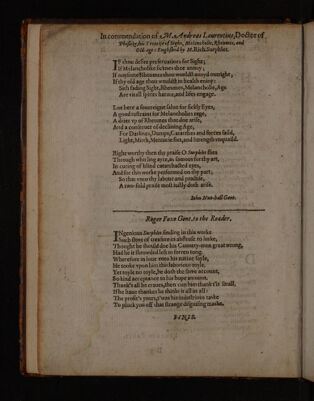 In commendation of M. Andreas Laurentius, Doctor of
Phisicke, his Treatise of Sight, Melancholie, Rheumes, and
Old age: Englished by M. Rich. Surphlet.
IF thou desire preseruatiues for Sight;
If Melancholike sicknes thee annoy;
If noysome Rheumes thou wouldst auoyd outright,
If thy old age thou wouldst in health enioy:
Sith fading Sight, Rheumes, Melancholie, Age
Are vitall spirits harme, and liues engage.
Loe here a soueraigne salue for sickly Eyes,
A good restraint for Melancholies rage,
A drier vp of Rheumes that doe arise,
And a comforter of declining Age,
For Darknes, Dumps, Catarrhes and forces faild,
Light, Mirth,
Right worthy then the praise O Surphlet flies
Through whirling ayre, as famous for thy art,
In curing of blind catarrhacted eyes,
And for this worke performed on thy part;
So that vnto thy labour and practise,
A two-fold praise most iustly doth arise.
Iohn Gent.
Roger Foxe Gent. to the Reader.
INgenious Surphlet finding in this worke
Such store of treasure in abstruse to lurke,
Thought he should doe his Country-men great wrong,
Had he it shrowded left in forren tong.
Wherefore in loue vnto his natiue soyle,
He tooke vpon him this laborious toyle.
Yet toyle no toyle, he doth the same account,
So kind acceptance to his hope amount.
Thank's all he craues, then can him thanks t'is small,
If he haue thankes he thinks it all in all:
The profit's yours, t'was his industrious taske
To pluck you off that strange disguising maske.
FINIS.